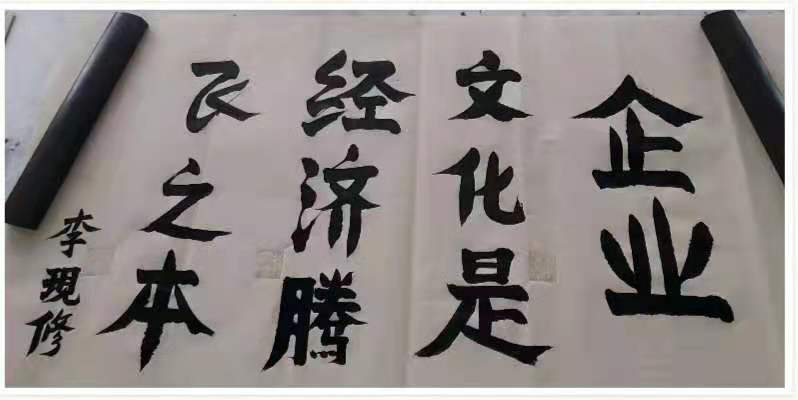 企业
文化是
经济腾
飞之本
李現修